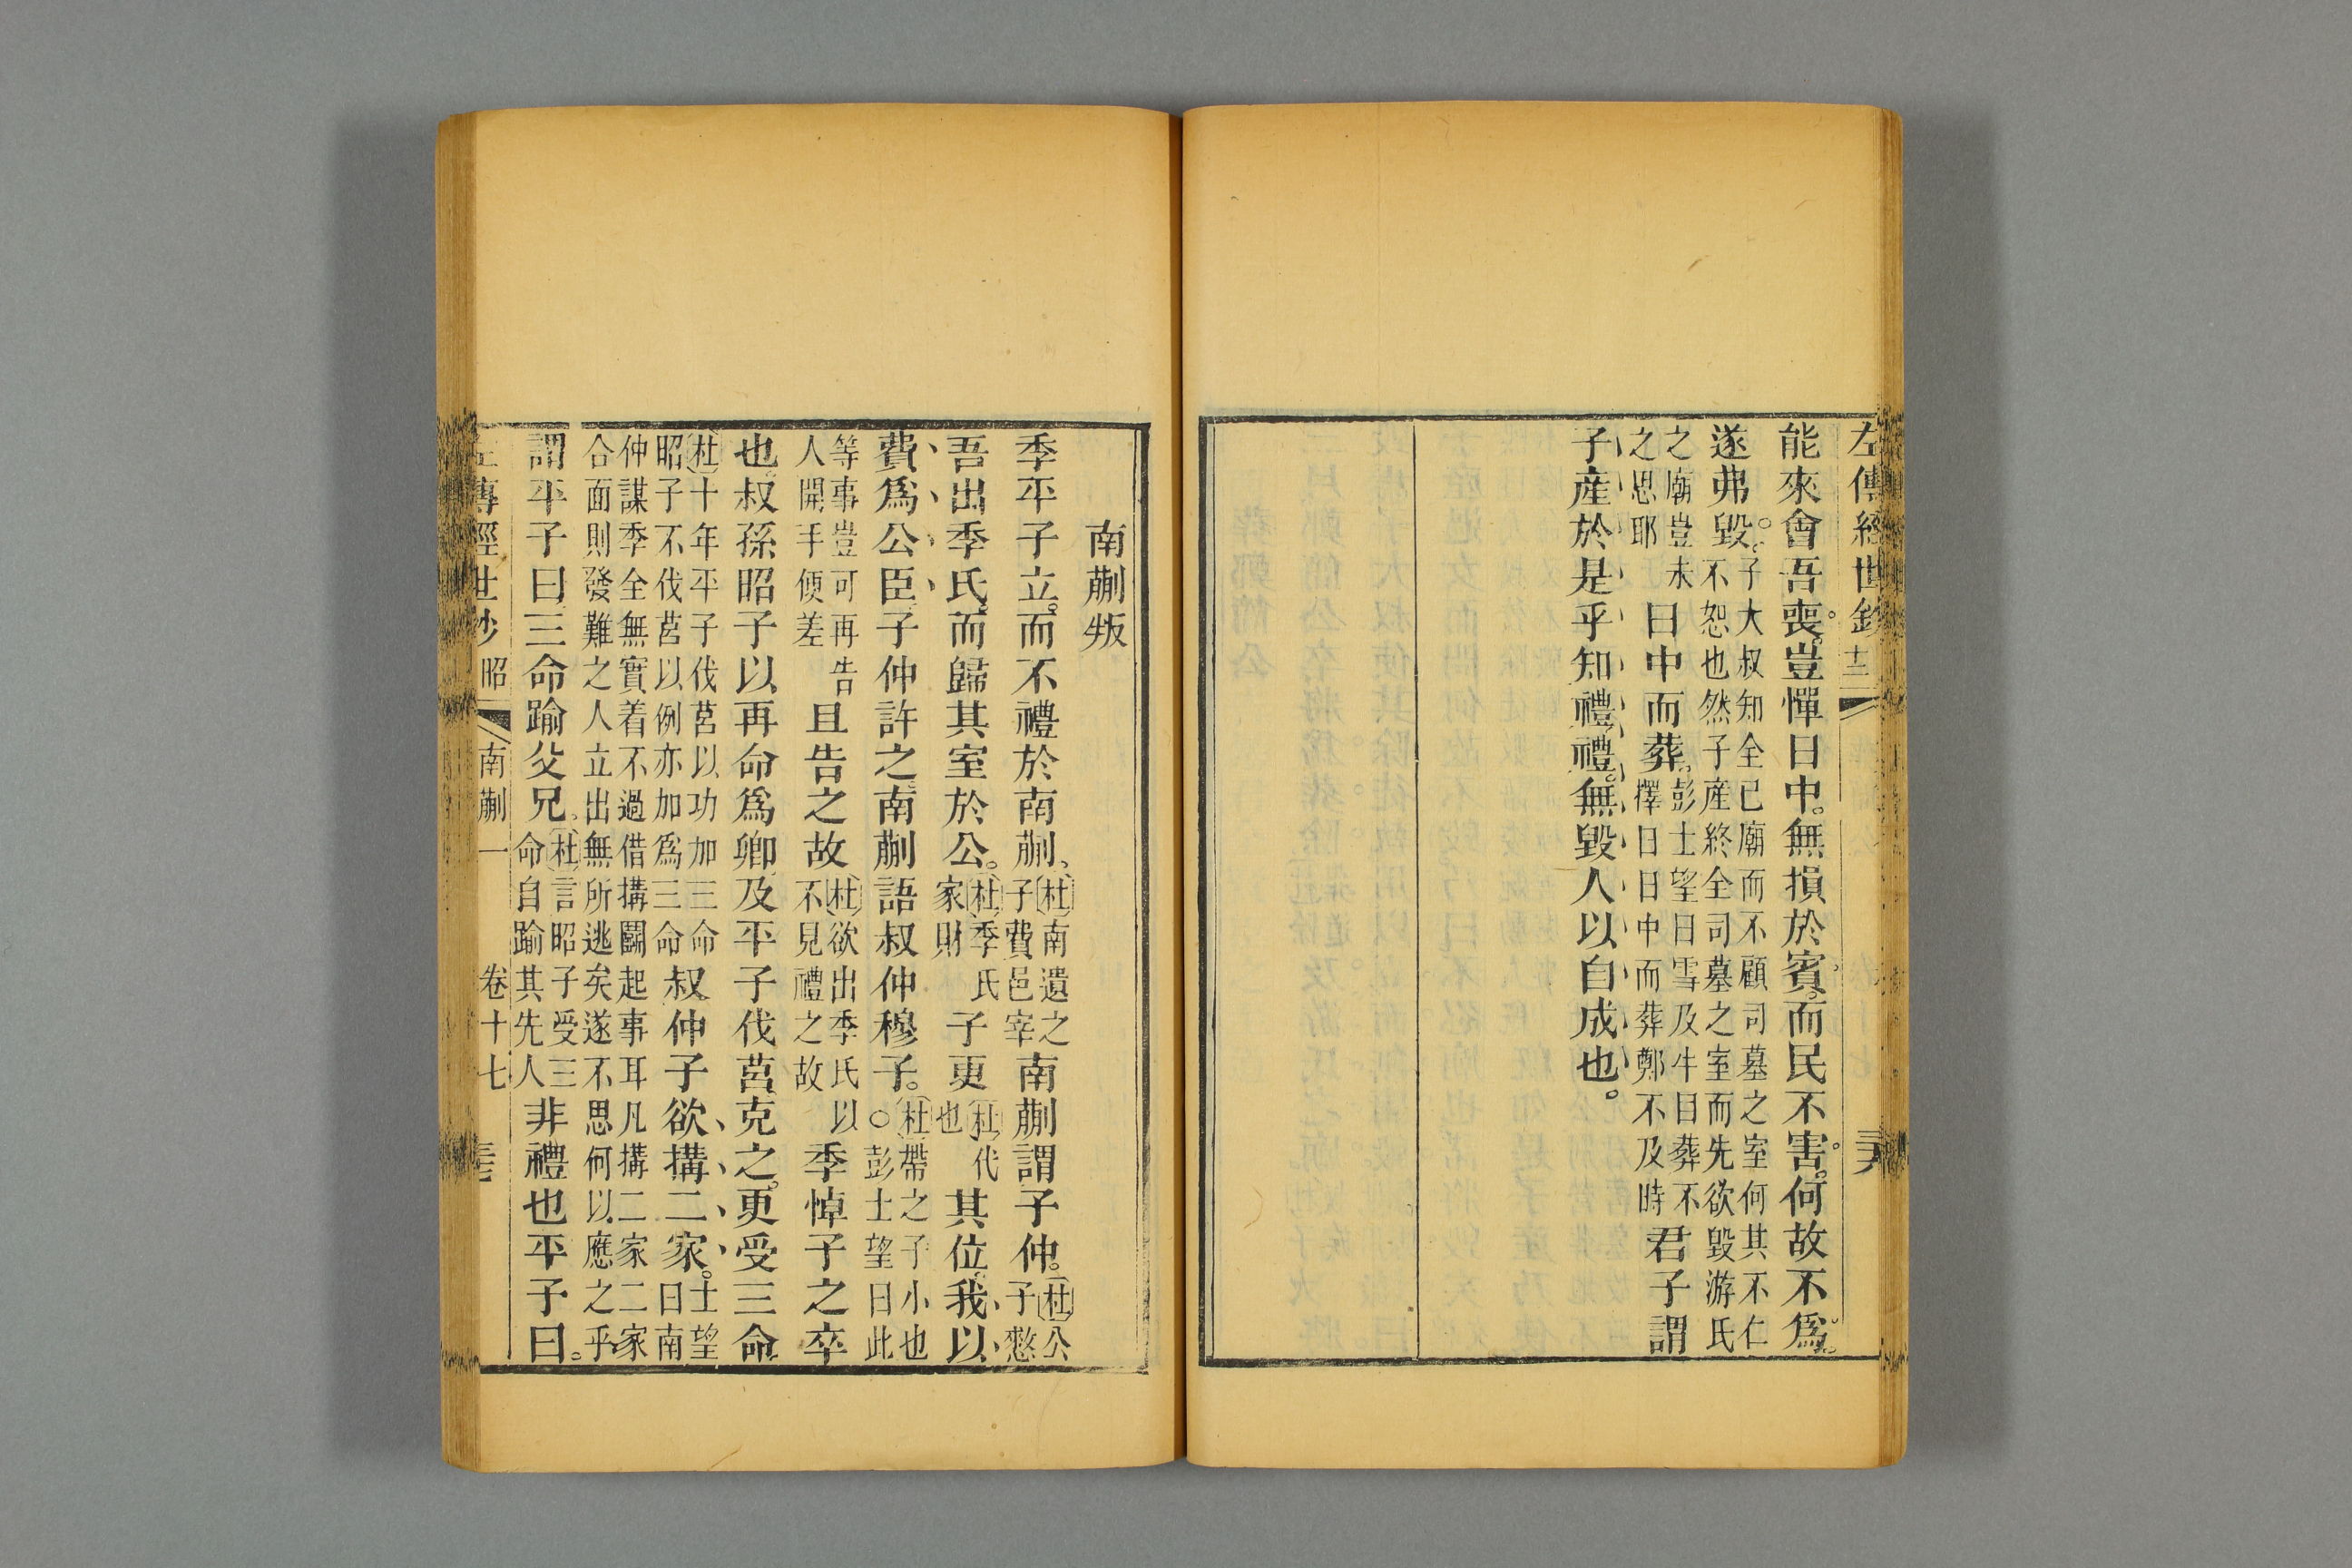 左傳經世鈔
能來會吾喪。豈憚日中。無損於賓。而民不害。何故不爲。
遂弗毀。子大叔知全已廟而不顧司墓之室何其不仁
不恕也然子產終全司墓之室而先欲毀游氏
之廟豈未
之思耶
日中而葬。彭士望曰雪及牛目葬不
擇日日中而葬鄭不及時
君子謂
子產於是乎知禮。禮。無毀人以自成也。
南蒯叛
季平子立。而不禮於南蒯、杜南遺之
子費邑宰
南蒯謂子仲。杜公
子憗
吾出季氏、而歸其室於公。杜季氏
家財
子更杜代
也
其位。我以
費爲公臣、子仲許之、南蒯語叔仲穆子。杜帶之子小也
○彭士望曰此
等事豈可再告
人開手便差
且告之故杜欲出季氏以
不見禮之故
季悼子之卒
也、叔孫昭子以再命爲卿、及平子伐莒、克之。更受三命、
杜十年平子伐莒以功加三命
昭子不伐莒以例亦加爲三命
叔仲子欲搆二家。士望
曰南
仲謀季全無實着不過借搆鬬起事耳凡搆二家二家
合面則發難之人立出無所逃矣遂不思何以應之乎
謂平子曰、三命踰父兄。杜言昭子受三
命自踰其先人
非禮也、平子曰。
左傳經世鈔 昭 南蒯一 卷十七